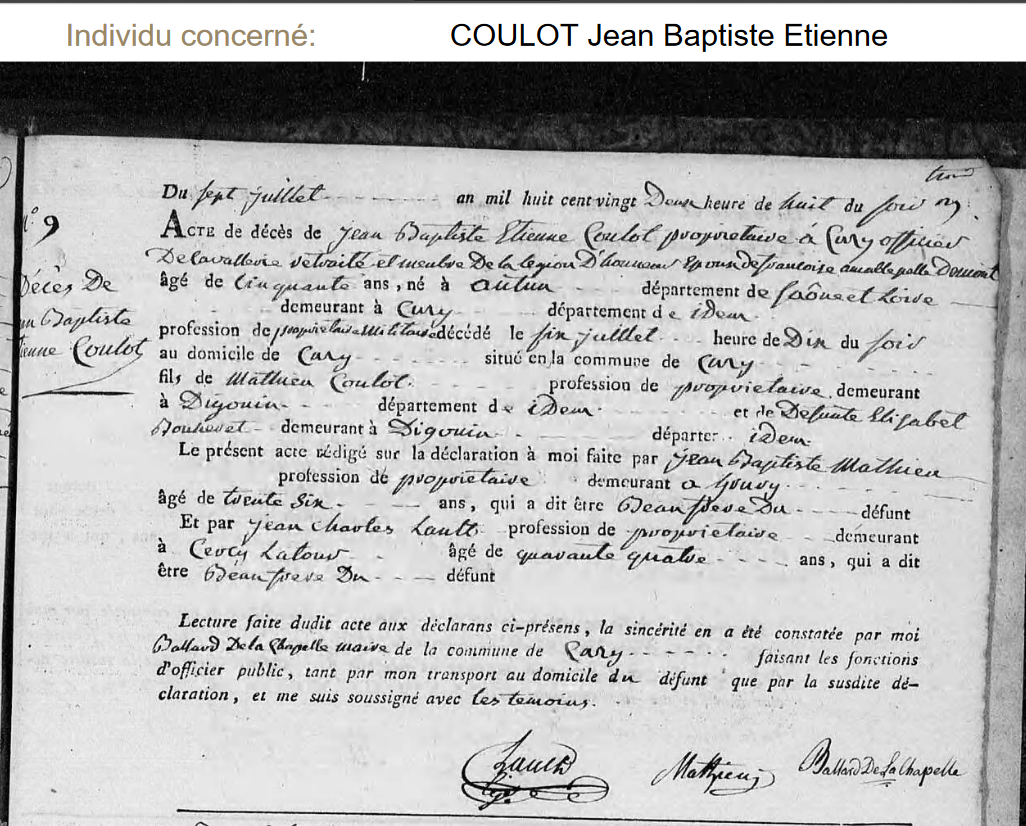 Individu concerné: COULOT Jean Baptiste Etienne
Du sept juillet an mil huit cent vingt Deux heure de huit du soir
N.º 9
ACTE de décès de Jean Baptiste Etienne Coulot proprietaire à Cury officier
De Cavallerie retraité et menbre De la legion D'honneur Epoux de francoise Domont
Décès De
âgé de Cinquante ans, né à autun département de Saône et Loire
Baptiste
demeurant à Cury département de idem
profession de proprietaire Militaire décédé le six juillet heure de Dix du soir
Coulot
au domicile de Cury situé en la commune de Cury
fils de Mathieu Coulot profession de proprietaire demeurant
à Digouin département de idem et de Defunte Elisabet
demeurant à Digouin départe idem
Le présent acte rédigé sur la déclaration à moi faite par Jean Baptiste Mathieu
profession de proprietaire demeurant a
âgé de trente Six ans, qui a dit être Beau frere Du défunt
Et par Jean Charles profession de proprietaire demeurant
à Cercy Latour âgé de quarante quatre ans, qui a dit
être Beau frere Du défunt
Lecture faite dudit acte aux déclarans ci-présens, la sincérité en a été constatée par moi
Ballard De la Chapelle maire de la commune de Cury faisant les fonctions
d'officier public, tant par mon transport au domicile du défunt que par la susdite dé-
claration, et me suis soussigné avec les temoins.
Lauth Mathieu Ballard De La Chapelle